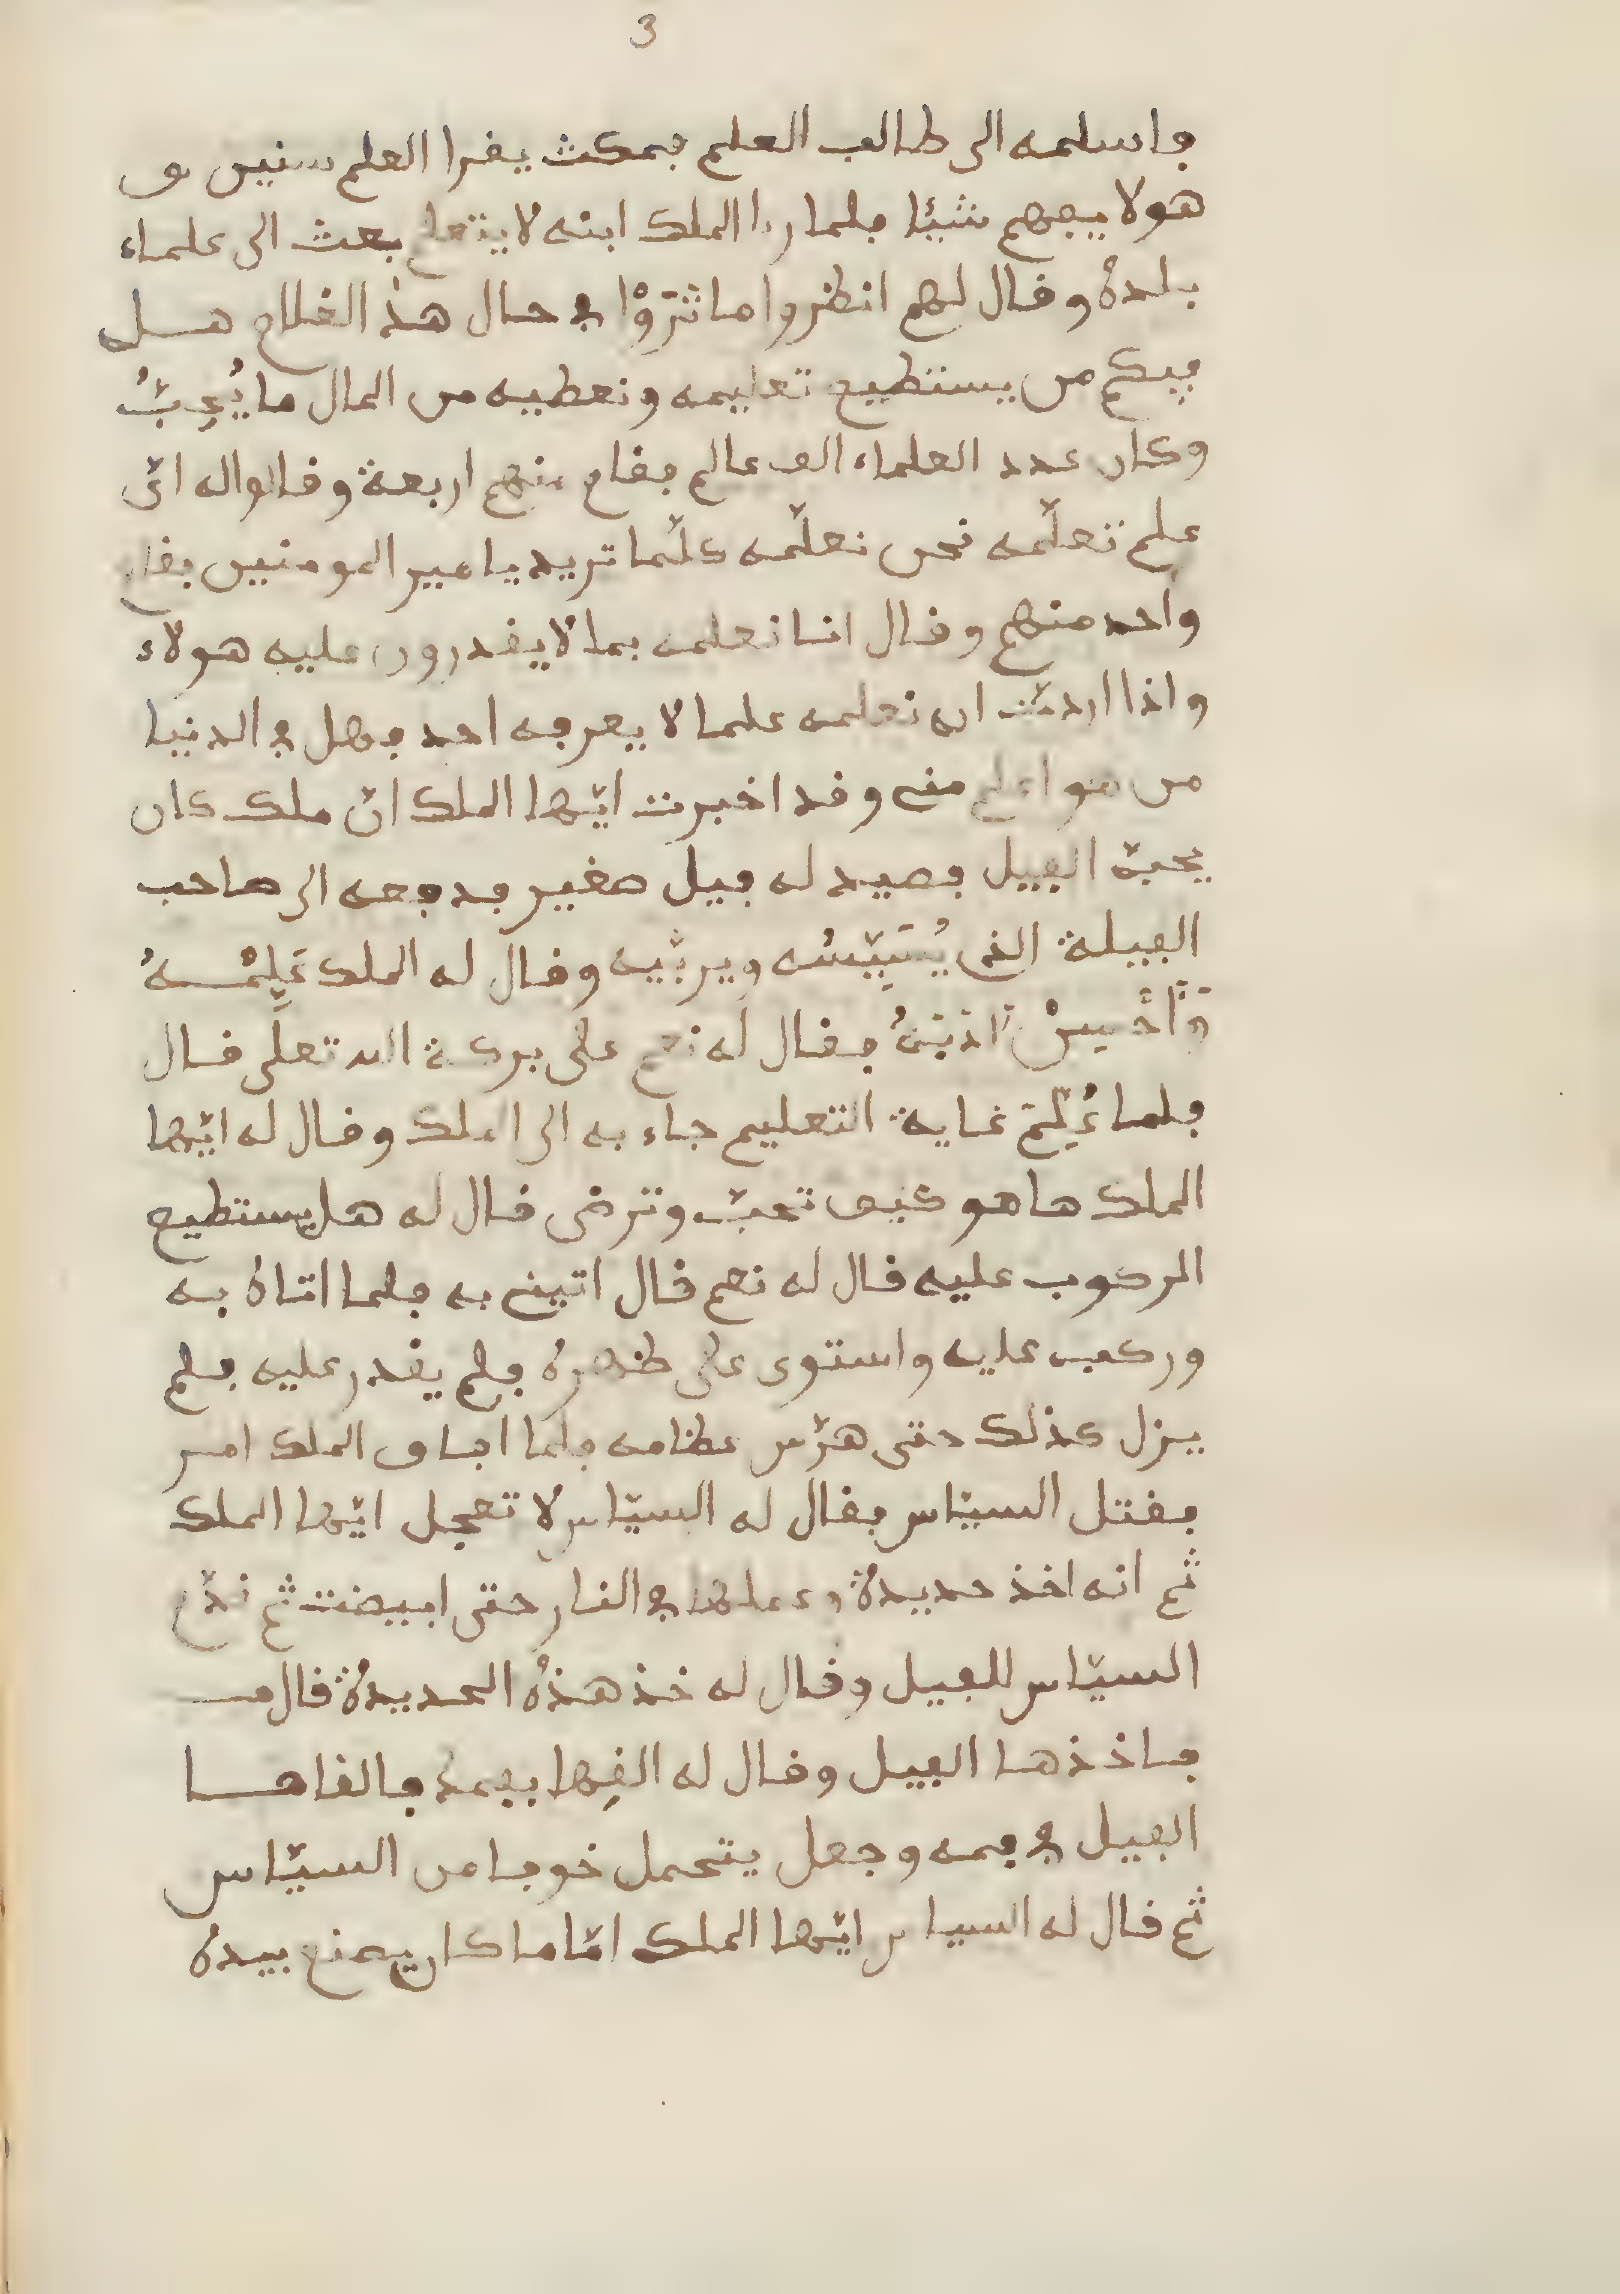 3
فاسلمه الى طالب العلم فمكث يقرا العلم سنين وق
هولا يفهم شيئا فلما را الملك ابنه لا يتعلم بعث الى علماء
بلده وقال لهم انظروا ما تَرَوْا في حال هذ الغلام هل
فيكم من يستطيع تعليمه ونعطيه من المال ما يُحِبُّ
وكان عدد العلماء الف عالم فقام منهم اربعة وقالوا له ايّ
علم تعلّمه نحن نعلّمه كلّما تريد يامير المومنين فقام
واحد منهم وقال انا نعلمه بما لا يقدرون عليه هولاء
واذا اردتّ ان نعلمه علما لا يعرفه احد فهل في الدنيا
من هو اعلم مني وقد اخبرت ايّها الملك انّ ملك كان
يحبّ الفيل فصيد له فيل صغير فدفعه الى صاحب
الفيلة الذى يُسَيِّسُه ويربّيه وقال له الملك عَلِّمْهُ
وَأَحْسِنْ اَدَبَهُ فقال له نعم على بركة الله تعلى قال
فلما عُلِّمَ غاية التعليم جاء به الى الملك وقال له ايّها
الملك ها هو كيف تحبّ وترضى قال له هل يستطيع
الركوب عليه قال له نعم قال اتيني به فلما اتاه به
وركب عليه واستوى على ظهره فلم يقدر عليه فلم
يزل كذلك حتى هرّس عظامه فلما افاق الملك امر
بقتل السيّاس فقال له السيّاس لا تعجل ايّها الملك
ثم انه اخذ حديدة وعملها في النار حتى ابيضت ثم
السيّاس للفيل وقال له خذ هذه الحديدة قال
فاخذها الفيل وقال له القِها بفمك فالقاها
الفيل في فمه وجعل يتحمل خوفا من السيّاس
ثم قال له السياس ايّها الملك امّا ما كان يصنع بيده